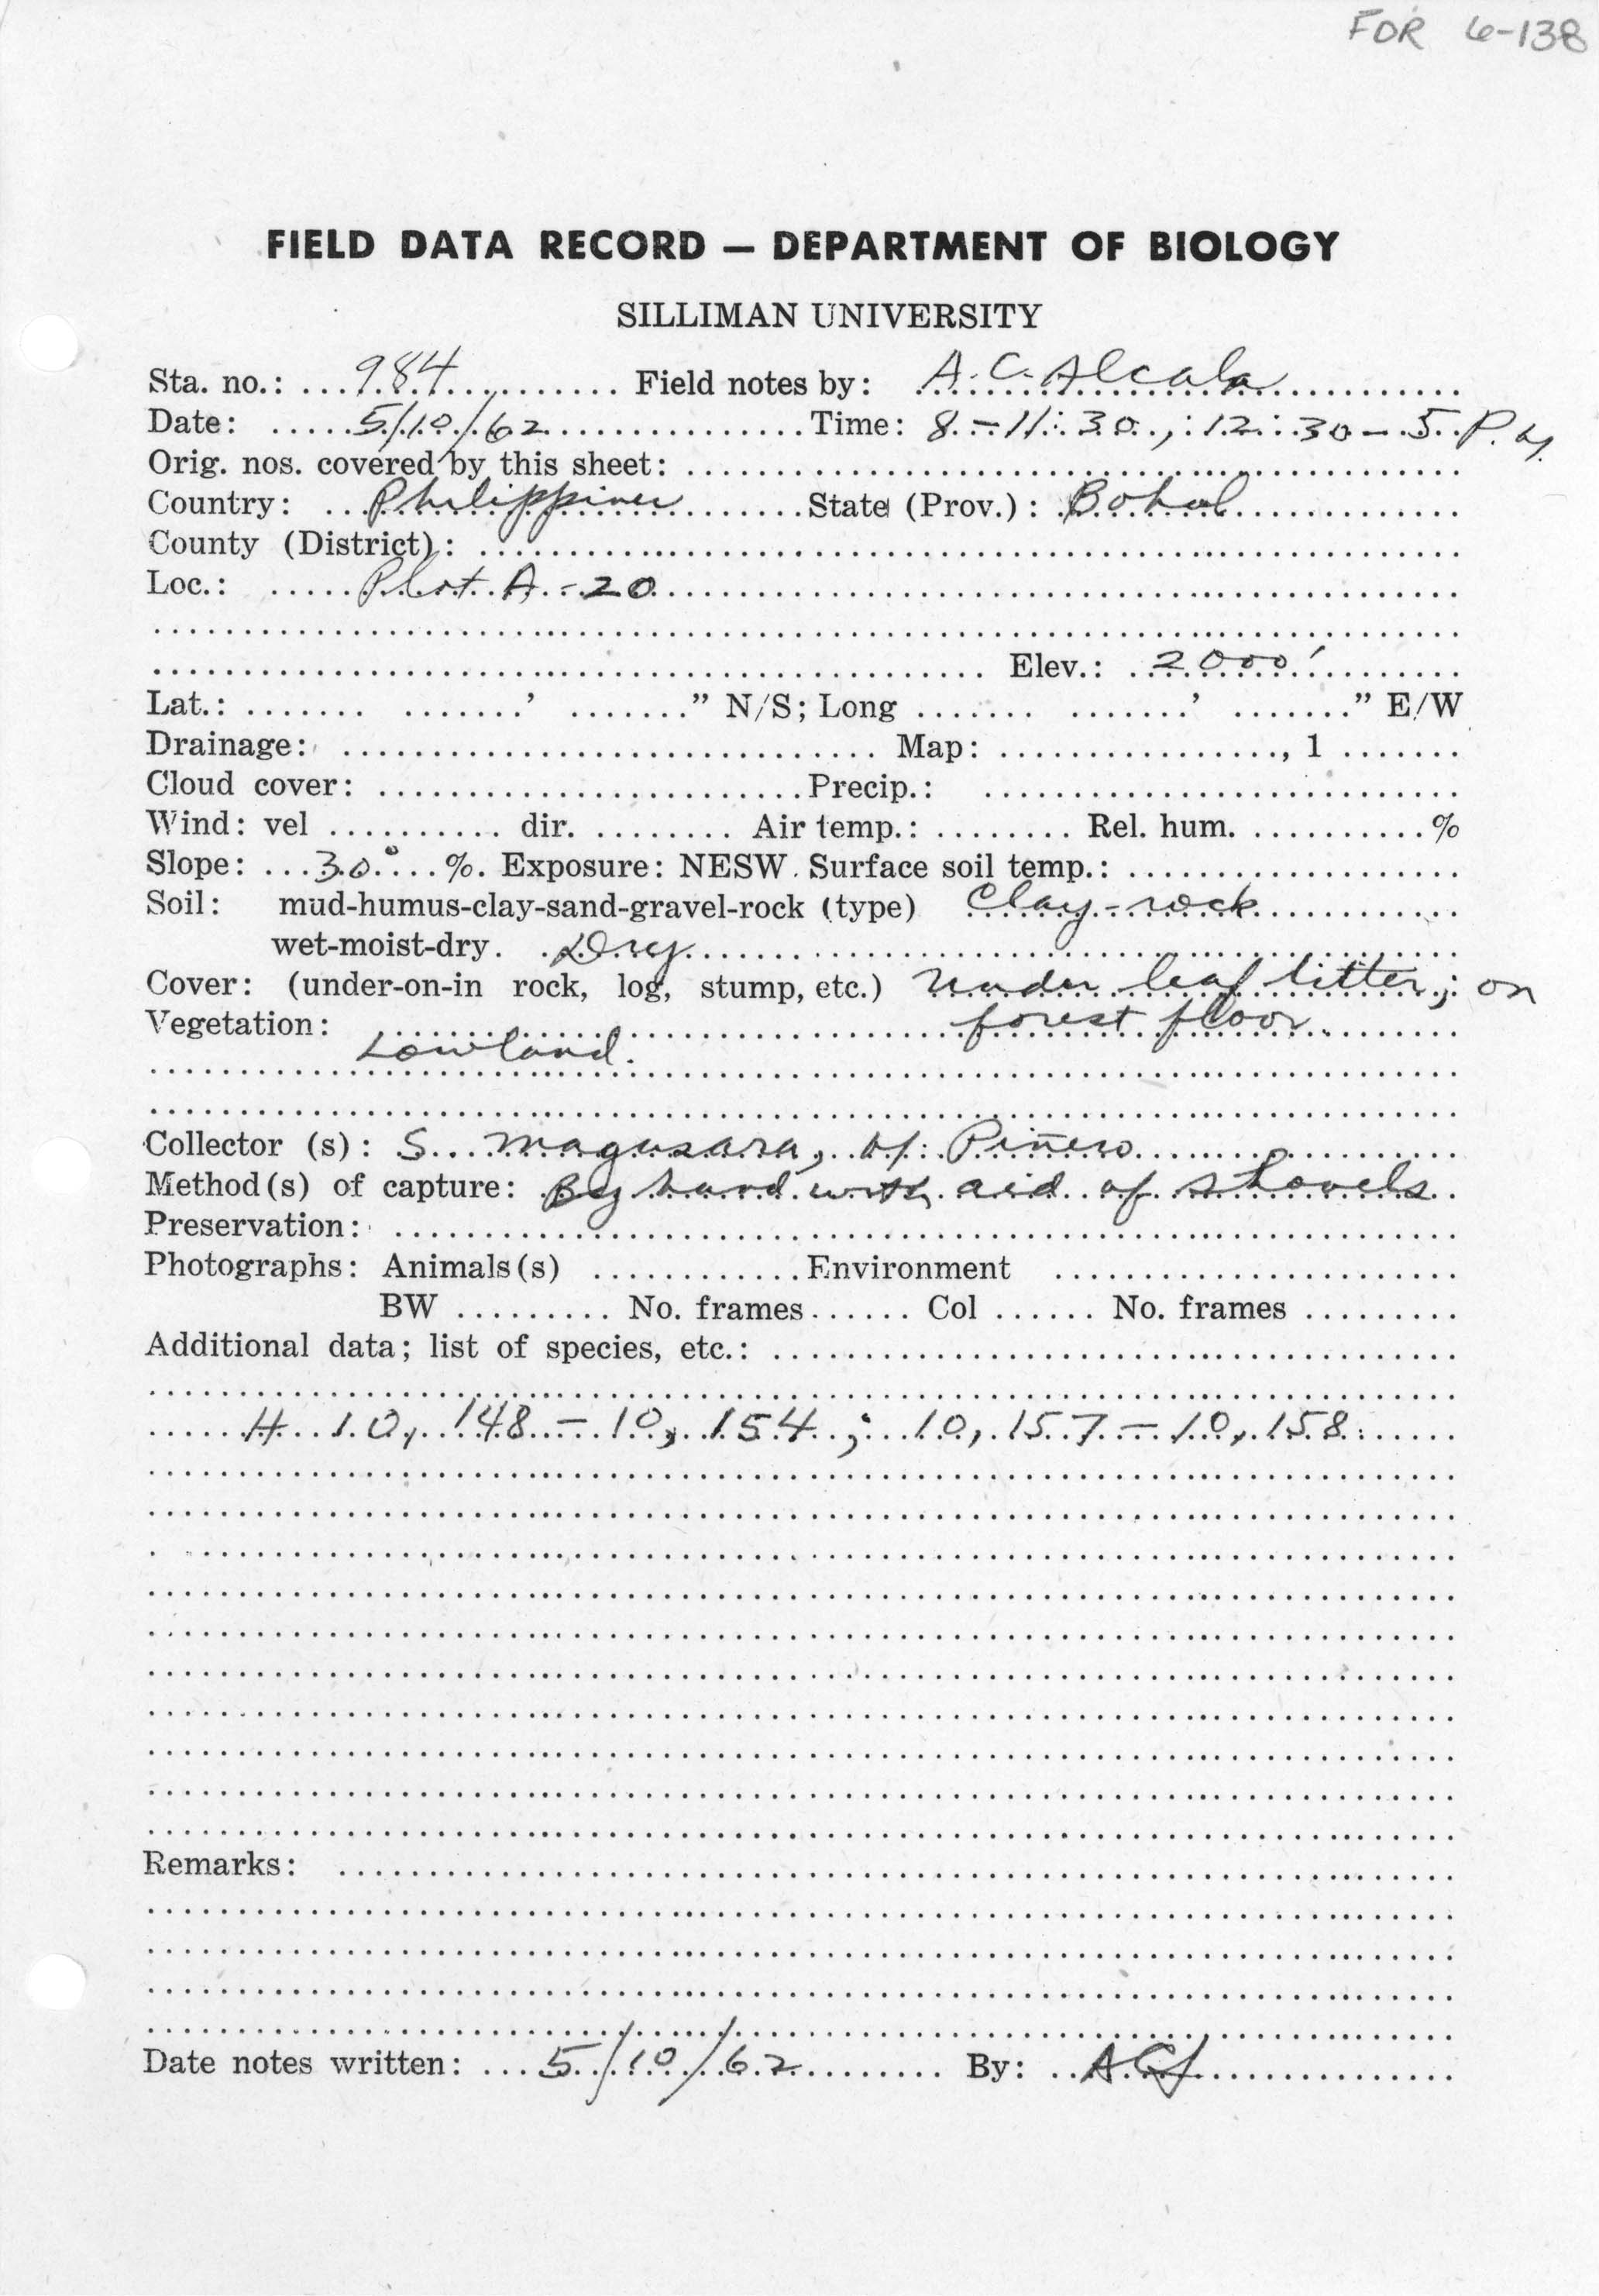 FOR 6-138
FIELD DATA RECORD — DEPARTMENT OF BIOLOGY
SILLIMAN UNIVERSITY
Sta. no.: 984 Field notes by: A. C. Alcala
Date: 5/10/62 Time: 8 - 11:30, 12:30 - 5 P.M.
Orig. nos. covered by this sheet:
Country: Philippines State (Prov.): Bohol
County (District):
Loc.: Plot A - 20
Elev.: 2000'
Lat.: ' " N/S; Long ' " E/W
Drainage: Map: , 1
Cloud cover: Precip.:
Wind: vel dir. Air temp.: Rel. hum. %
Slope: 30° %. Exposure: NESW. Surface soil temp.:
Soil: mud-humus-clay-sand-gravel-rock (type) Clay-rock
wet-moist-dry. Dry
Cover: (under-on-in rock, log, stump, etc.) under leaf litter; on
Vegetation: forest floor
Lowland.
Collector (s): S. Magusara, Piñero
Method(s) of capture: By hand with aid of shovels
Preservation:
Photographs: Animals(s) Environment
BW No. frames Col No. frames
Additional data; list of species, etc.:
H 10,148 - 10,154; 10,157 - 10,158
Remarks:
Date notes written: 5/10/62 By: